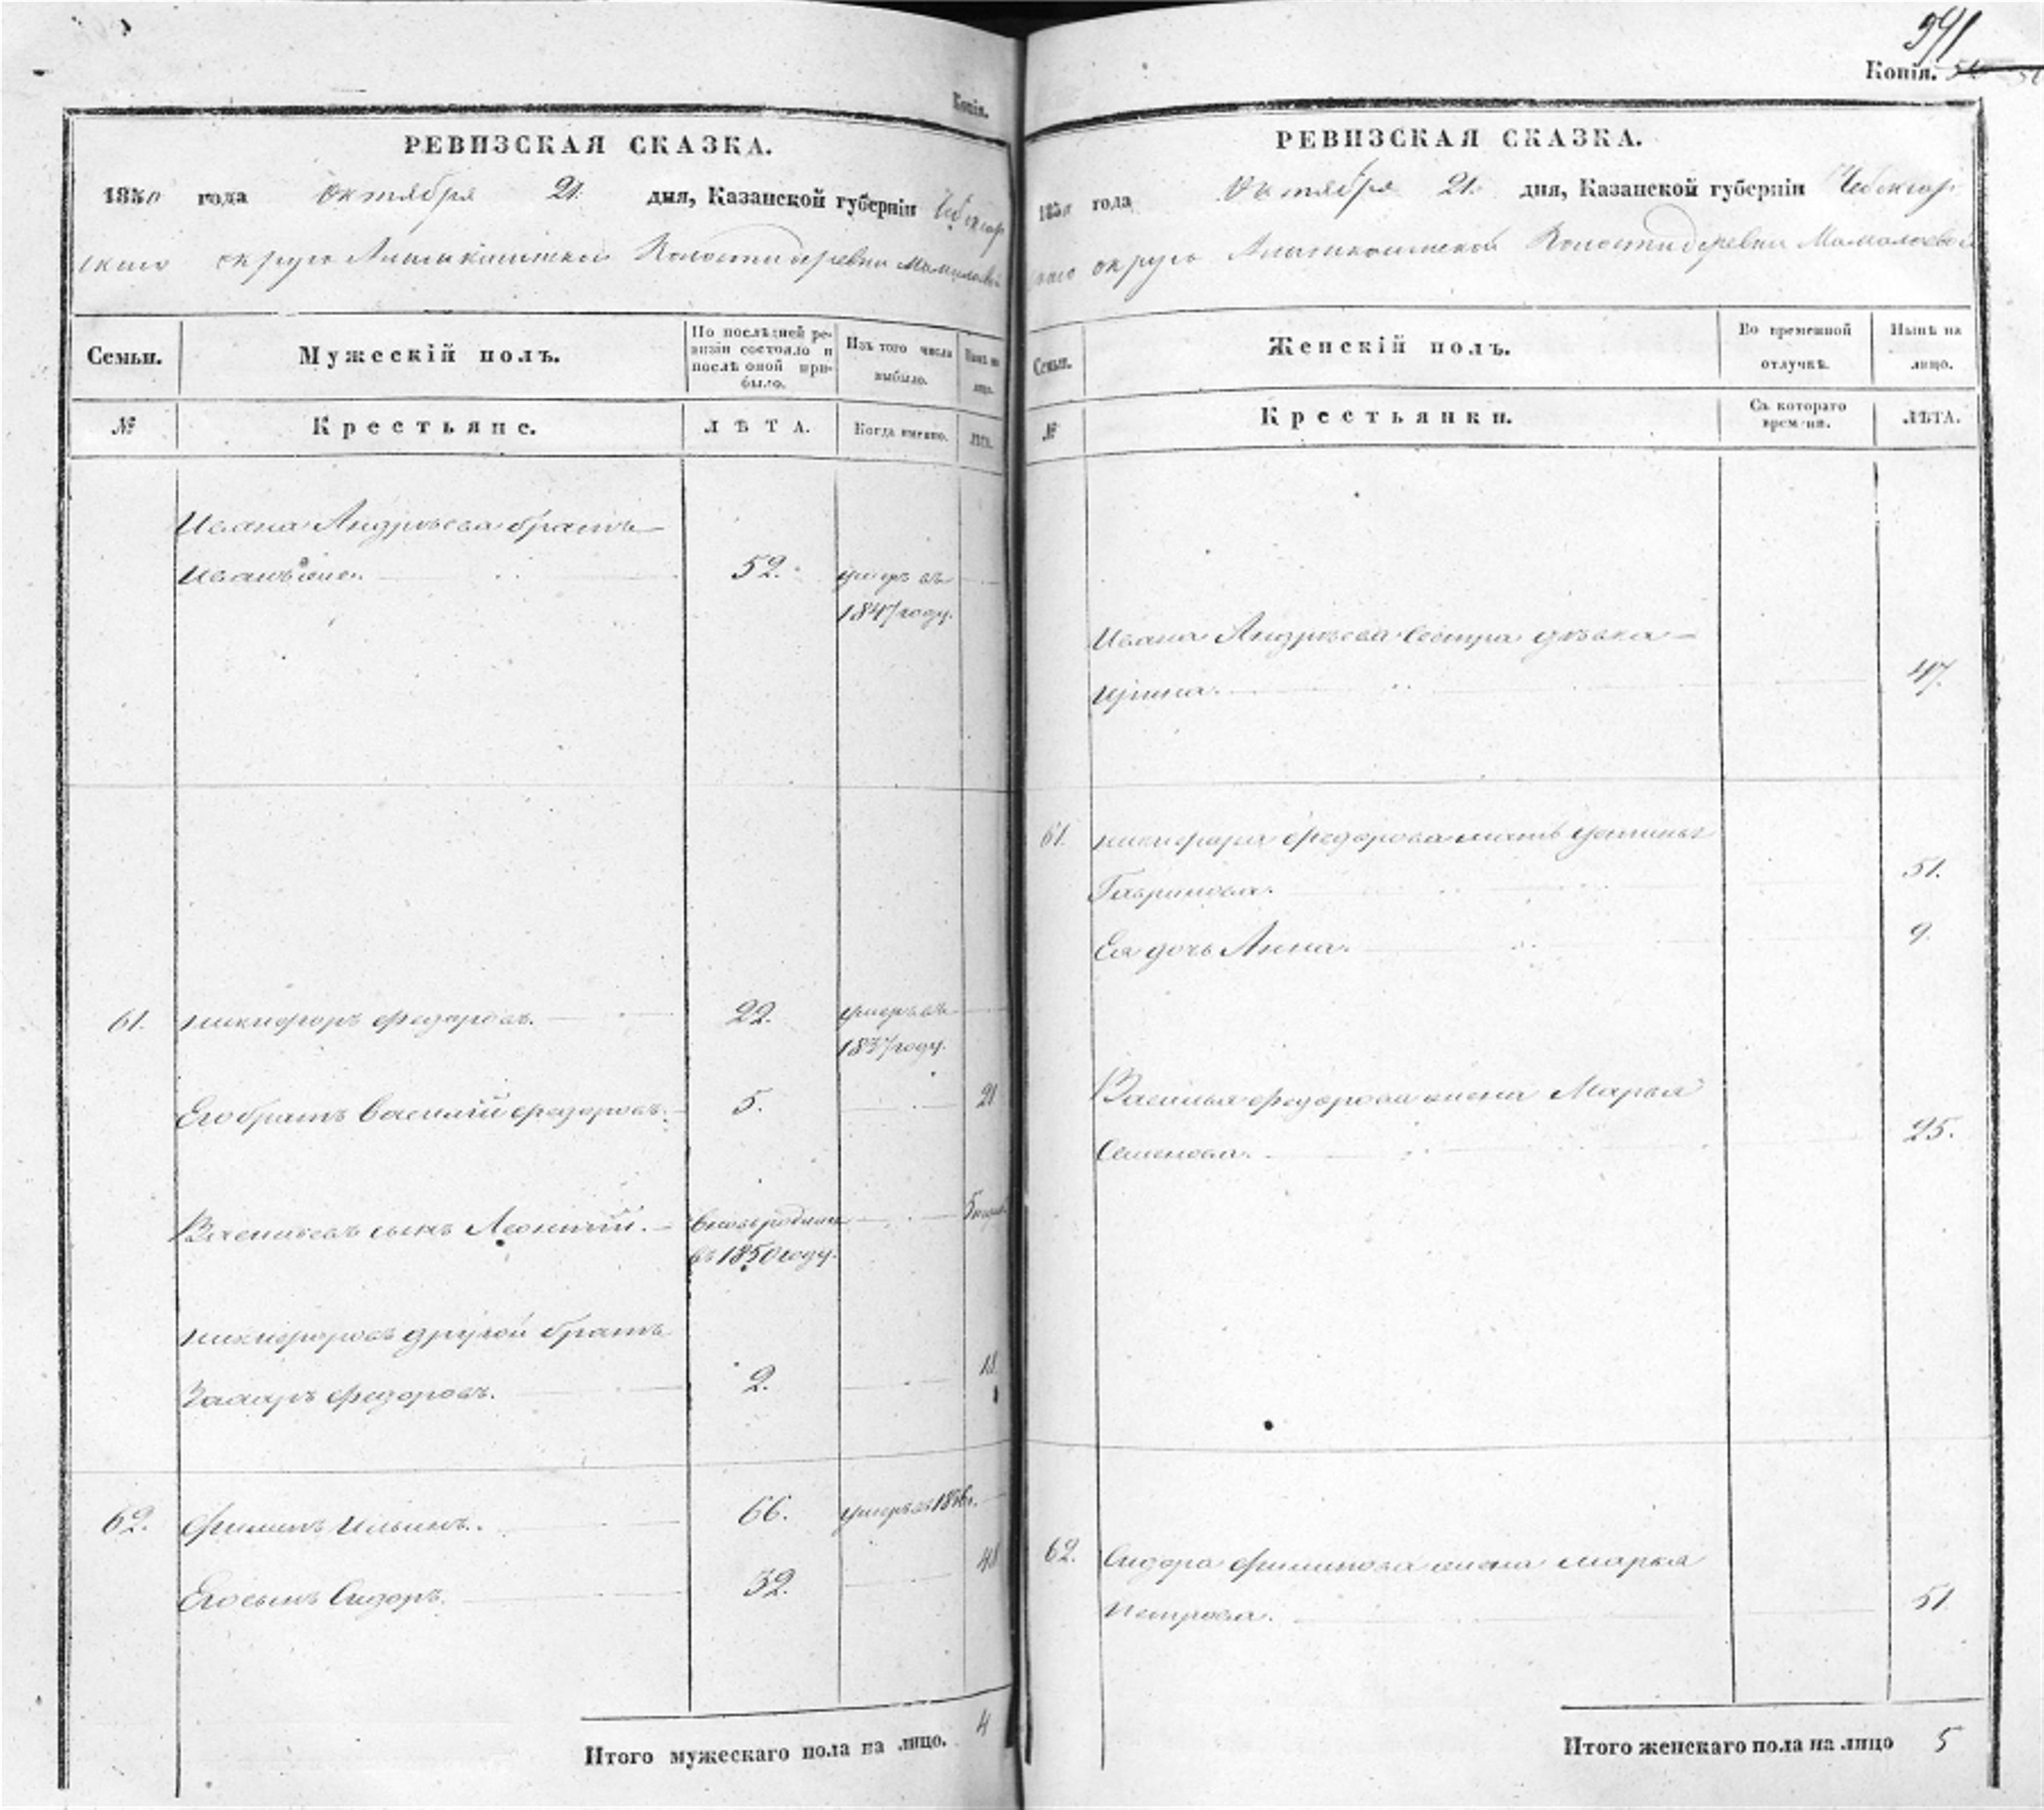 Копія.
РЕВИЗСКАЯ СКАЗКА.
1850 года октября 21 дня, Казанской губерніи Чебоксар
скаго округа Волости деревни
Семьи. Мужескій полъ. По послѣдней ре-
визіи состояло и
послѣ оной при-
было. Изъ того числа
выбыло. Нынѣ на
лицо.
№ Крестьяне. ЛѢТА. Когда именно. ЛѢТА.
Ивана Андрѣева братъ
52. умеръ въ
1847 году.
61. Никифоръ Федоровъ. 22. умеръ въ
1837 году.
Его братъ Василий Федоровъ. 5. 21
Васильевъ сынъ Леонтий. вновь рожден
въ 1850 году. 5
Никифоровъ другой братъ
Захаръ Федоровъ. 2. 18
62. Филипъ Ильинъ. 66. умеръ въ
Его сынъ Сидоръ. 32. 48
Итого мужескаго пола на лицо. 4
Копія.
РЕВИЗСКАЯ СКАЗКА.
1850 года Октября 21 дня, Казанской губерніи Чебоксар
скаго округа Волости деревни
Семьи. Женскій полъ. Во временной
отлучкѣ. Нынѣ на
лицо.
№ Крестьянки. Съ котораго
времени. ЛѢТА.
Ивана Андрѣева сестра дѣвка
Ирина. 47.
61. Никифора Федорова мать Устинья
Гаврилова. 51.
Ея дочь Анна. 9.
Василья Федорова жена Марья
Семенова. 25.
62. Сидора Филипова жена Марья
Петрова. 51
Итого женскаго пола на лицо 5